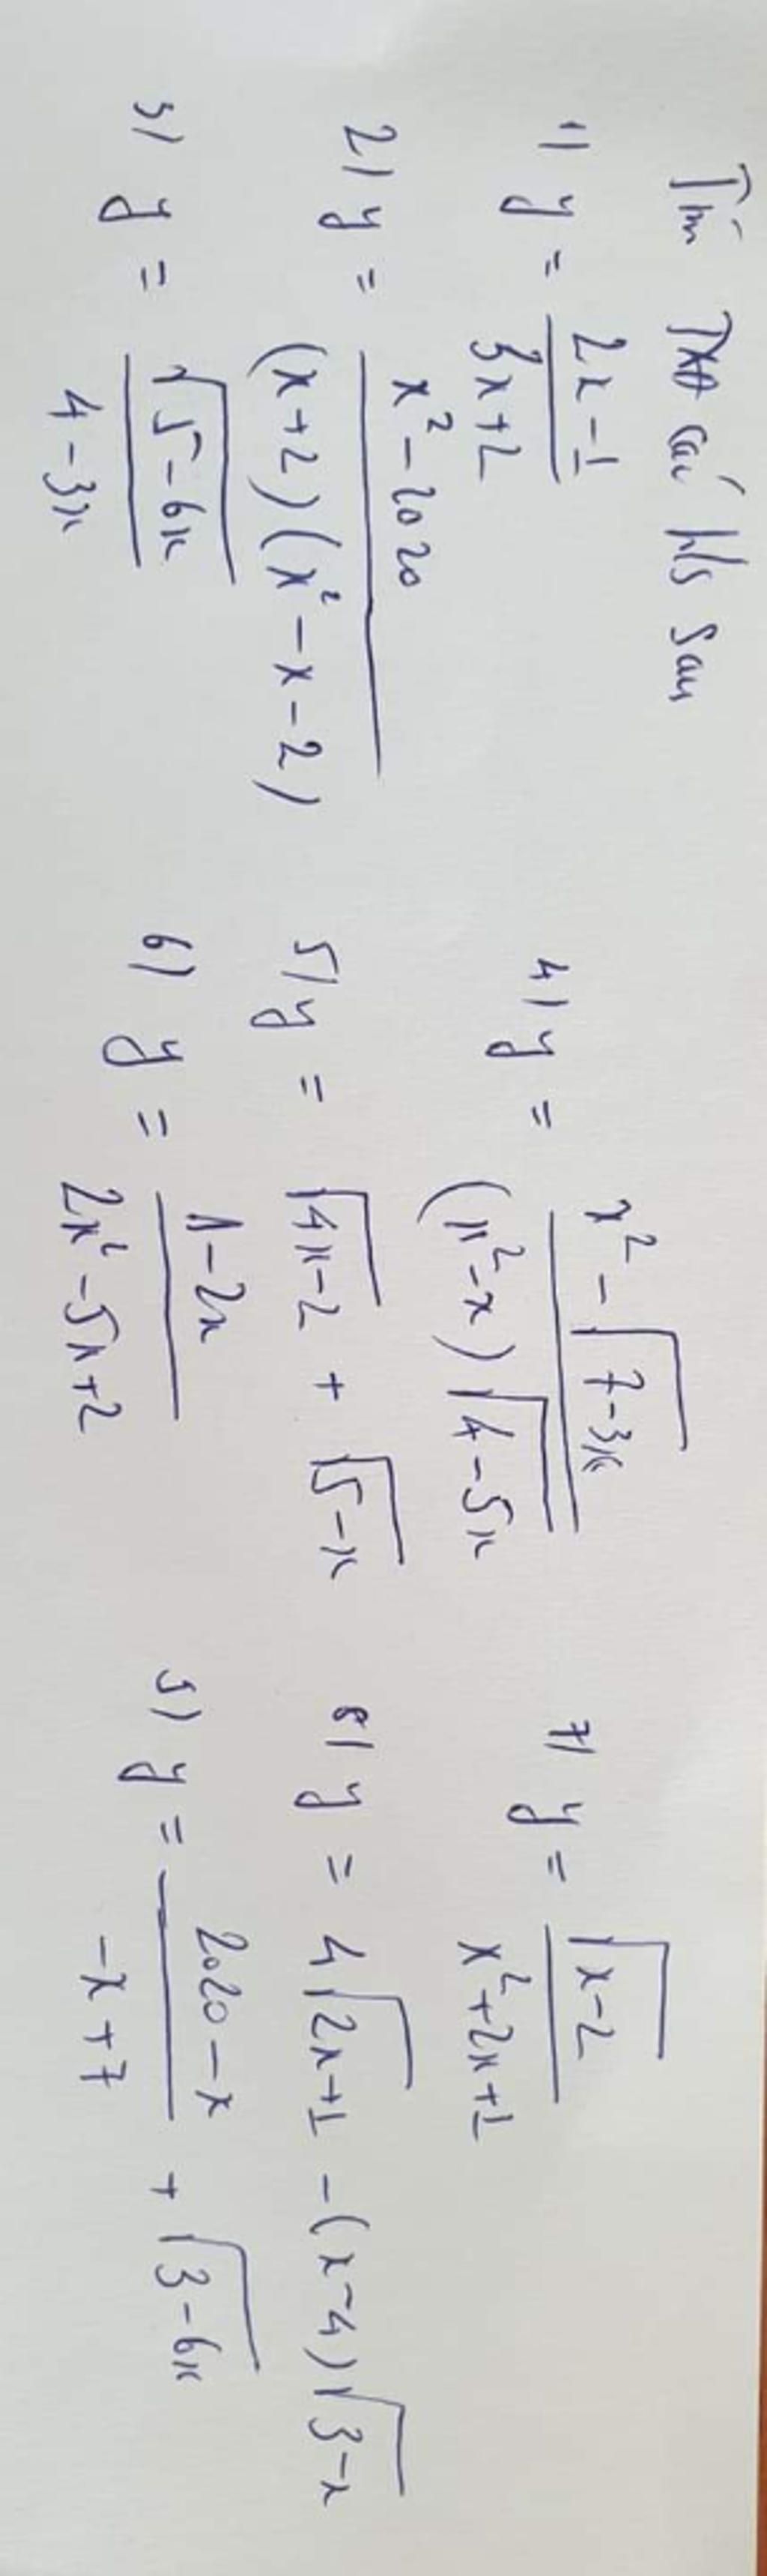 Tìm TXĐ các h/s sau
1) y = \frac{2x-1}{3x+2}
2) y = \frac{x^2-2020}{(x+2)(x^2-x-2)}
3) y = \frac{\sqrt{5-6x}}{4-3x}
4) y = \frac{x^2-\sqrt{7-3x}}{(x^2-x)\sqrt{4-5x}}
5) y = \sqrt{4x-2} + \sqrt{5-x}
6) y = \frac{1-2x}{2x^2-5x+2}
7) y = \frac{\sqrt{x-2}}{x^2+2x+1}
8) y = 4\sqrt{2x+1} - (x-4)\sqrt{3-x}
9) y = \frac{2020-x}{-x+7} + \sqrt{3-6x}